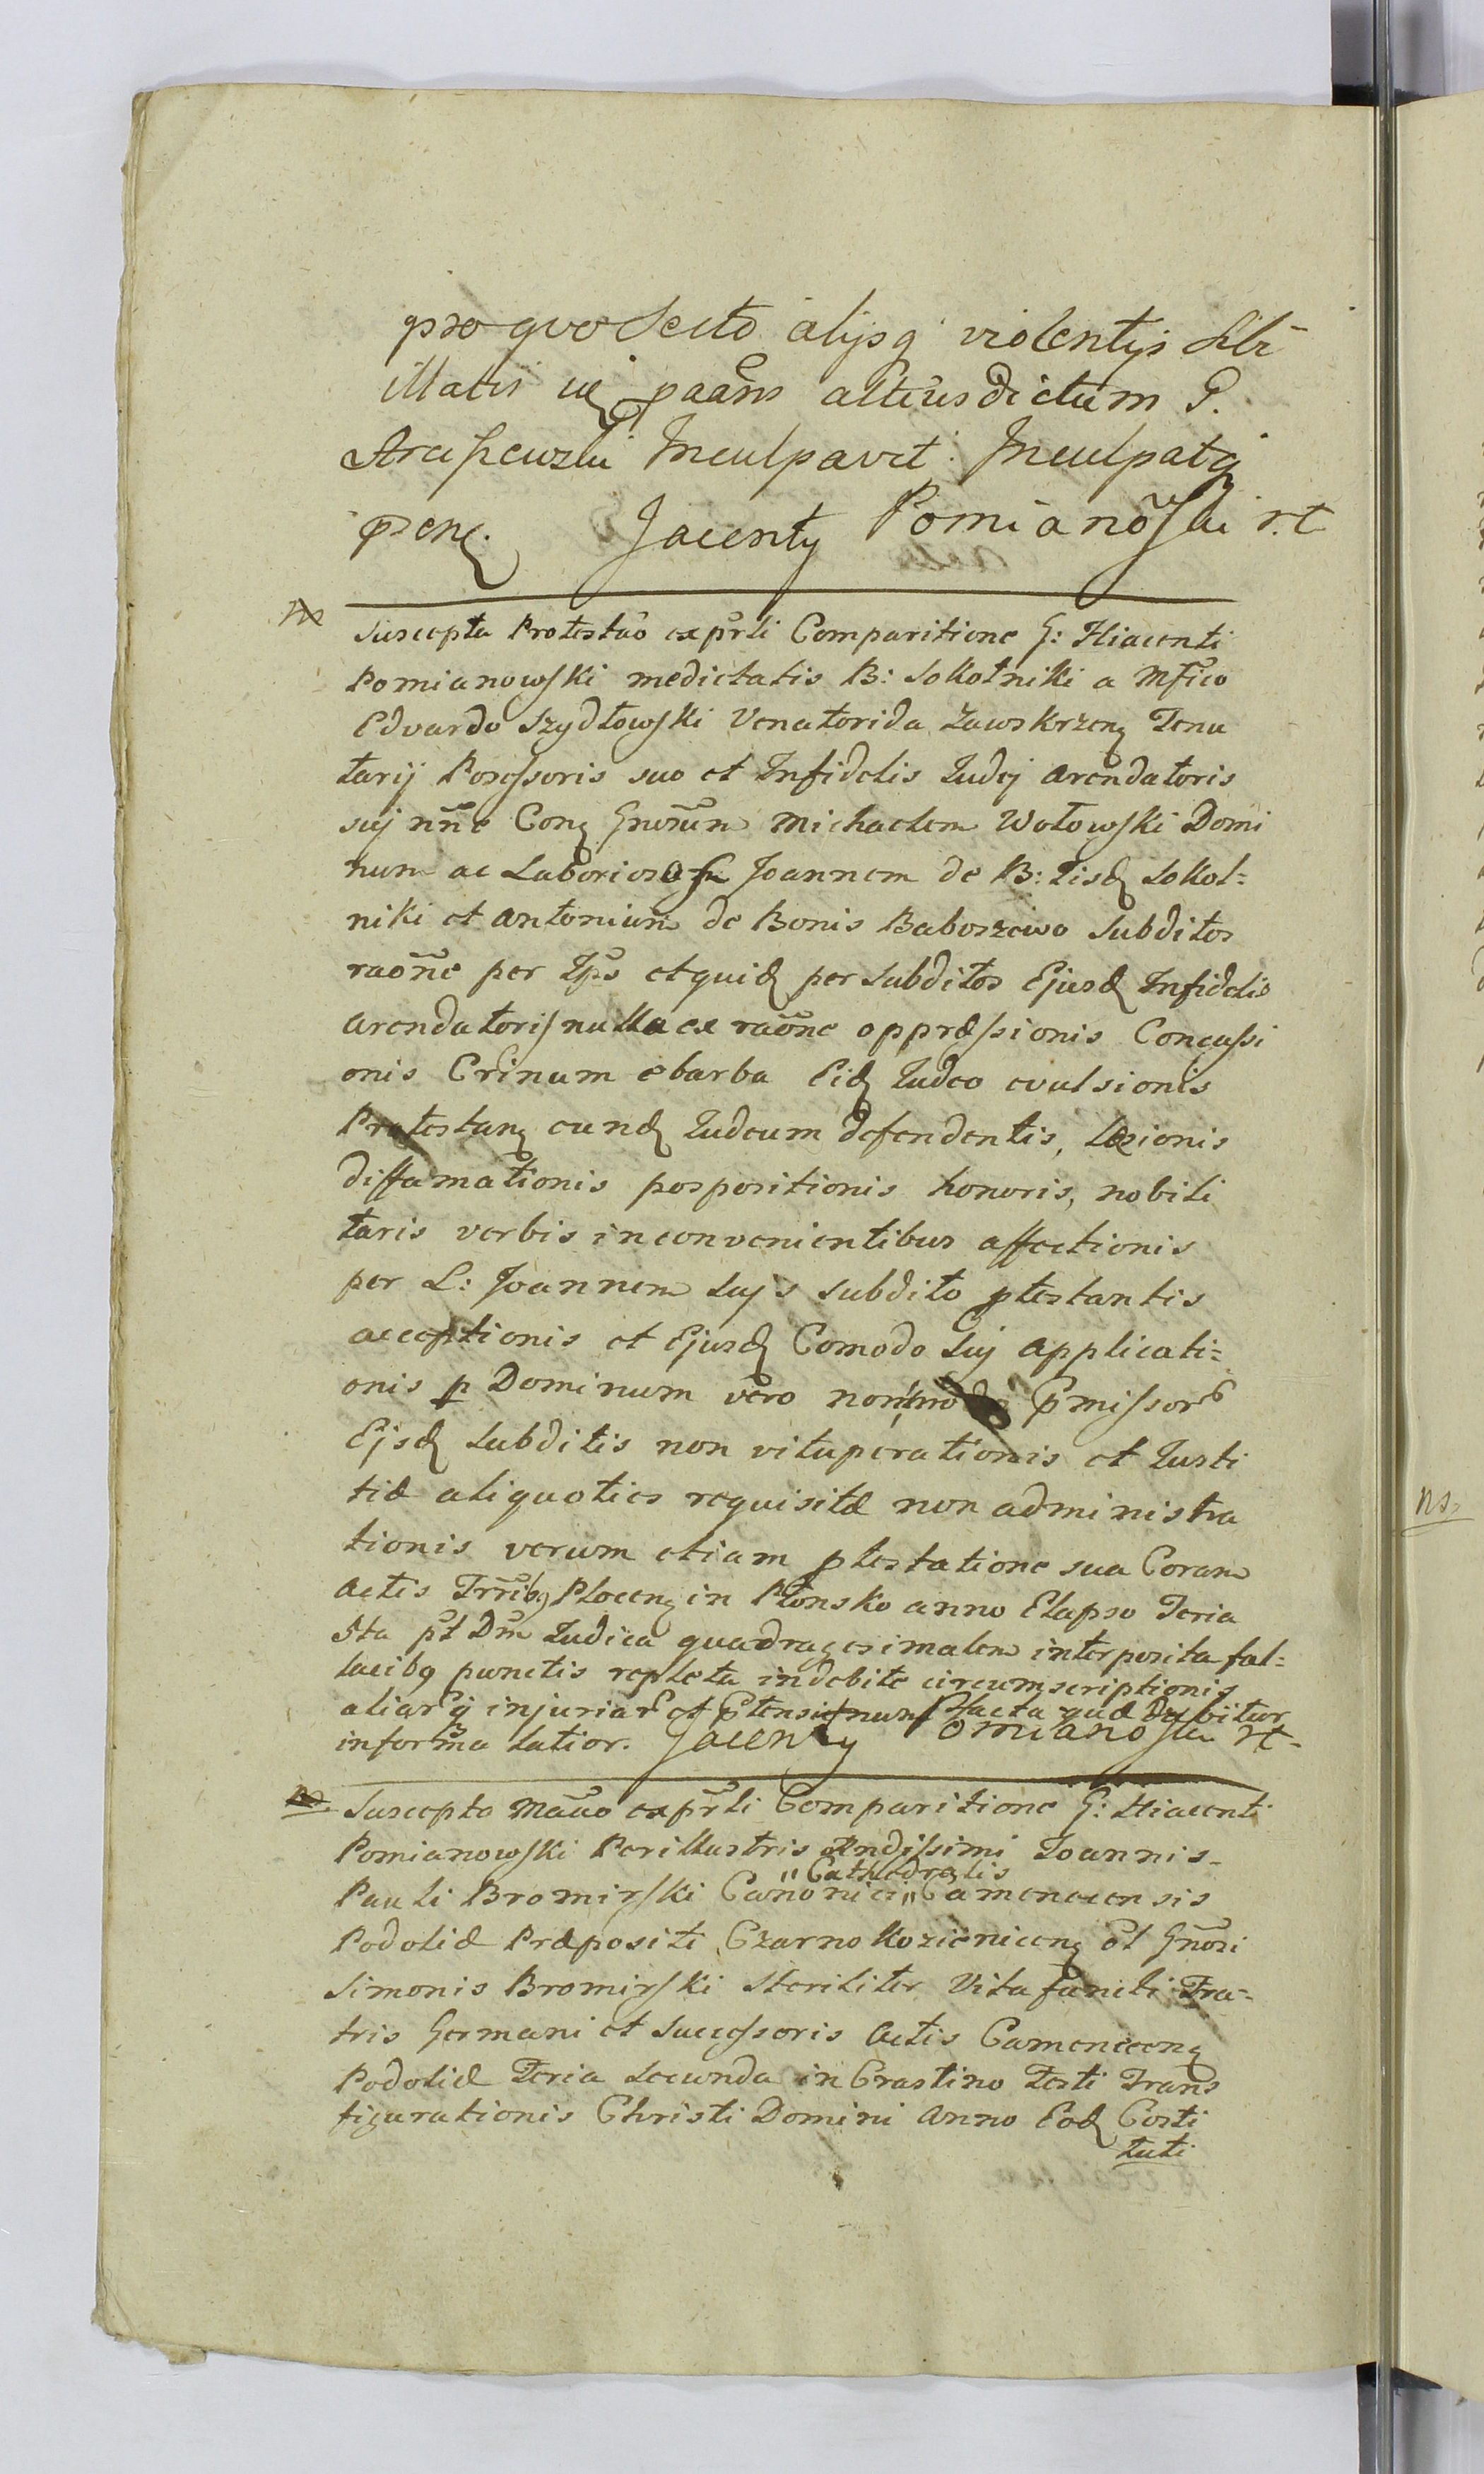 pro quo secto alijsq violentijs sibi
illatis uq paans altiusdictum G.
Araszewski Inculpavit Inculpatq
pnq. Jacenty Pomianowski r.t
ns
Suscepta Protestaõ ex prsli Comparitione G: Hiacenti
Pomianowski medietatis B: Sokolniki a Mfico
Edvardo Szydłowski Venatorida Zawskrzenq Tenu
tarij Possessoris suo et Infidelis Iudej arendatoris
sui nñe Conq Gnerum Michaelem Wołowski Domi
num ac Laboriosos Joannem de B: Iisdq Sokol=
niki et Antonium de Bonis Baboszewo Subditos
raõne per Ips et quidq per Subditos Ejusdq Infidelis
arendatoris nulla ex raõne oppræssionis Concussi
onis Crinum e barba Eidq Iudeo evulsionis
Protestanq eundq Iudeum defendentis, Læsionis
diffamationis pospositionis honoris, nobili
taris verbis inconvenientibus affectionis
per L: Joannem suis subdito ptestantis
acceptionis et Ejusdq Comodo sui applicati=
onis p Dominum vero non modo Pmissor
Ejsdq Subditis non vituperationis et Iusti
tiæ aliquoties requisitæ non administra
tionis verum etiam ptestatione sua Coram
Actis Trribq Plocenq in Płonsko anno Elapso Feria
5ta pt Dm Iudica quadragesimalem interposita fal=
lacibq punctis repleta indebite circumscriptionis
aliarq injuriar et Ptensionum facta quæ Dabitur
in forma latior. Jacenty Pomianowski rt
ns
Suscepto Mãuo ex prsli Comparitione G: Hiacenti
Pomianowski Perillustris Rndissimi Joannis
"Cathedralis
Pauli Bromirski Canonici" Camenecensis
Podoliæ Præpositi Czarnokozienicenq et Gnosi
Simonis Bromirski Steriliter Vita functi Fra=
tris Germani et Successoris Actis Camenecenq
Podoliæ Feria Secunda in Crastino Festi Trans
figurationis Christi Domini Anno Eodq Costi
tuti
ns